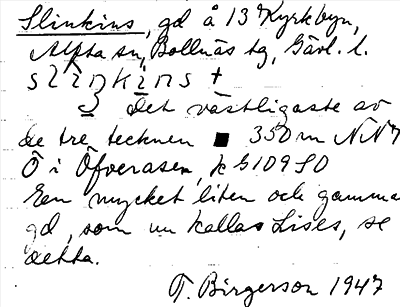 Slinkins, gd å 13 Kyrkbyn,
Alfta sn, Bollnäs tg, Gävl. l.
det västligaste av
de tre tecknen ■ 350 m NNV
Ö i Öfverasen, k G109 SO
En mycket liten och gamma
gd, som nu kallas Lises, se
detta.
T. Birgerson 1947